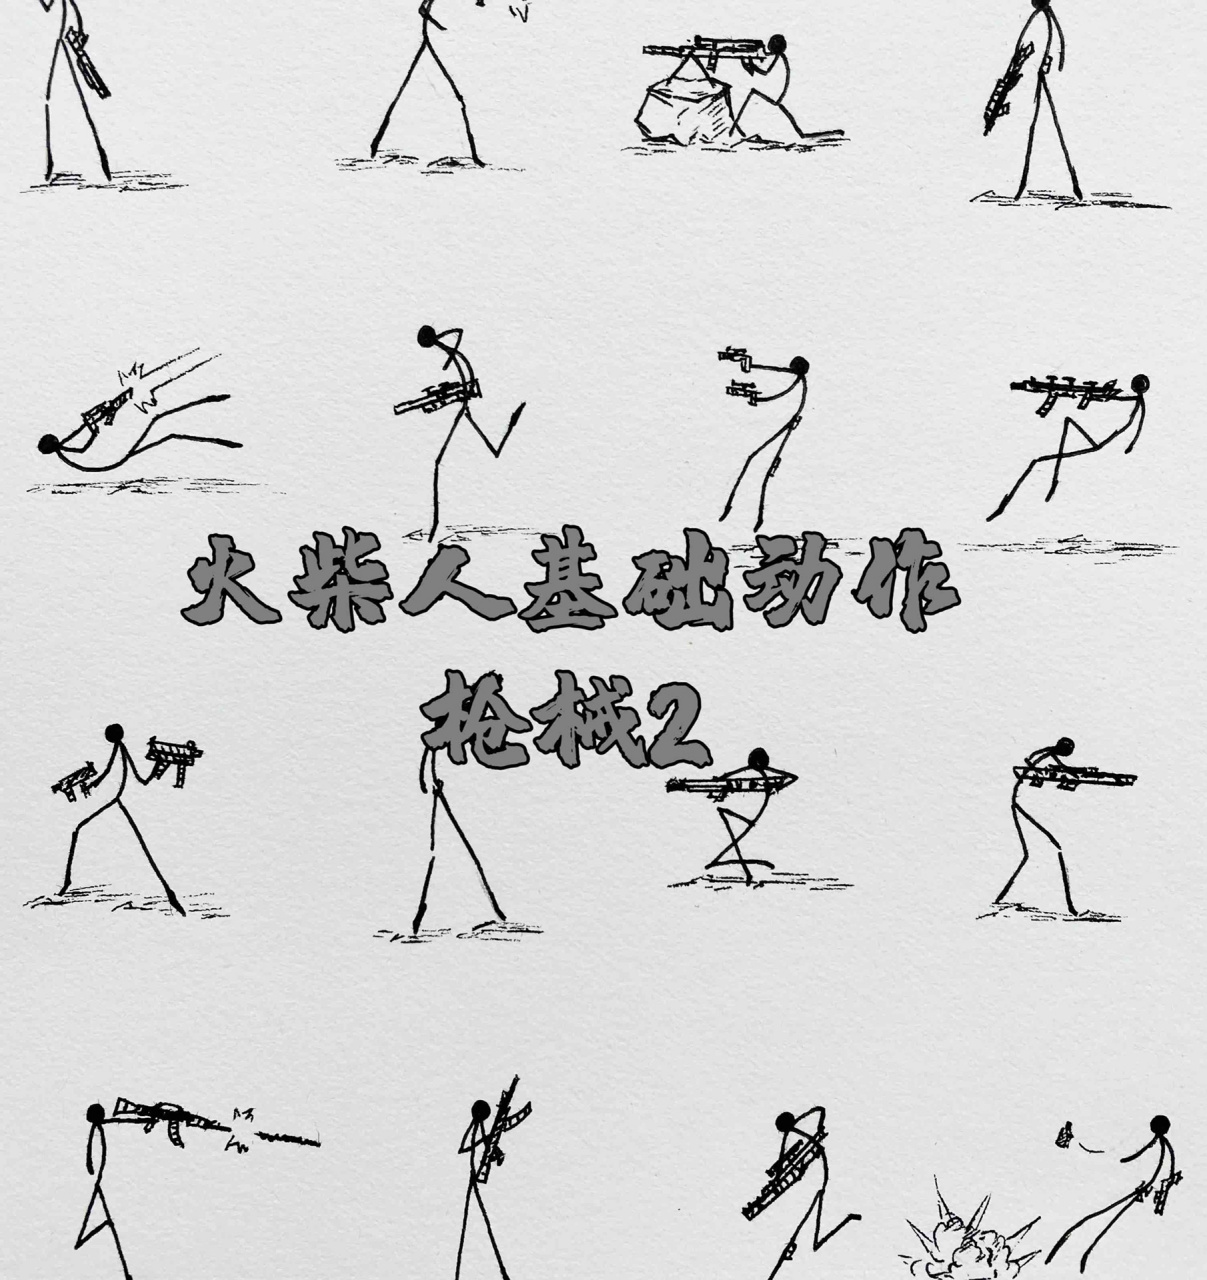 火柴人基础动作
枪械2